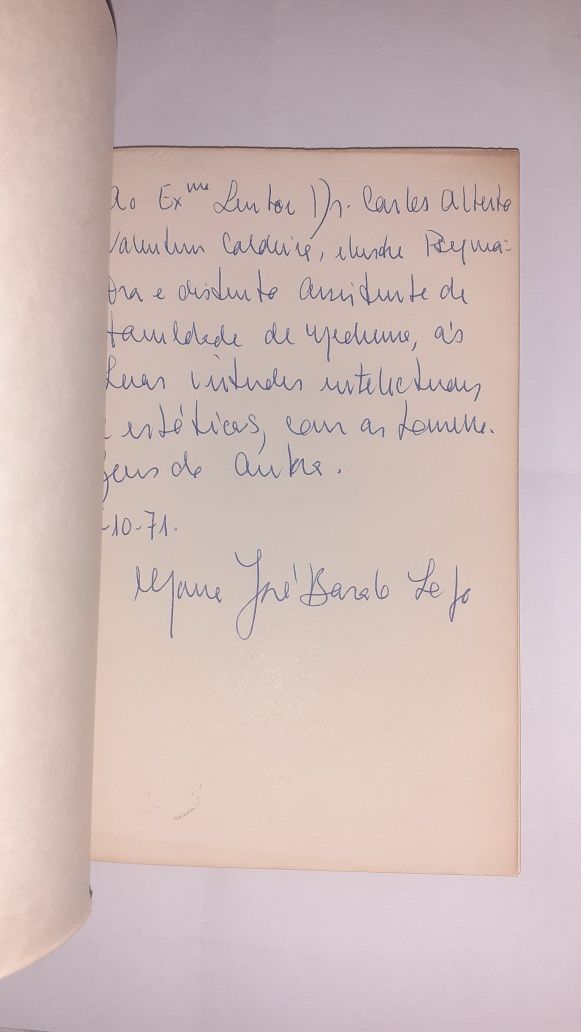 Ao Ex^mo Senhor Dr. Carlos Alberto
Valentim Caldeira, ilustre
e distinto Assistente da
Faculdade de Medicina, às
suas virtudes intelectuais
e estéticas, com as homena-
gens da Autora.
-10-71.
Maria José